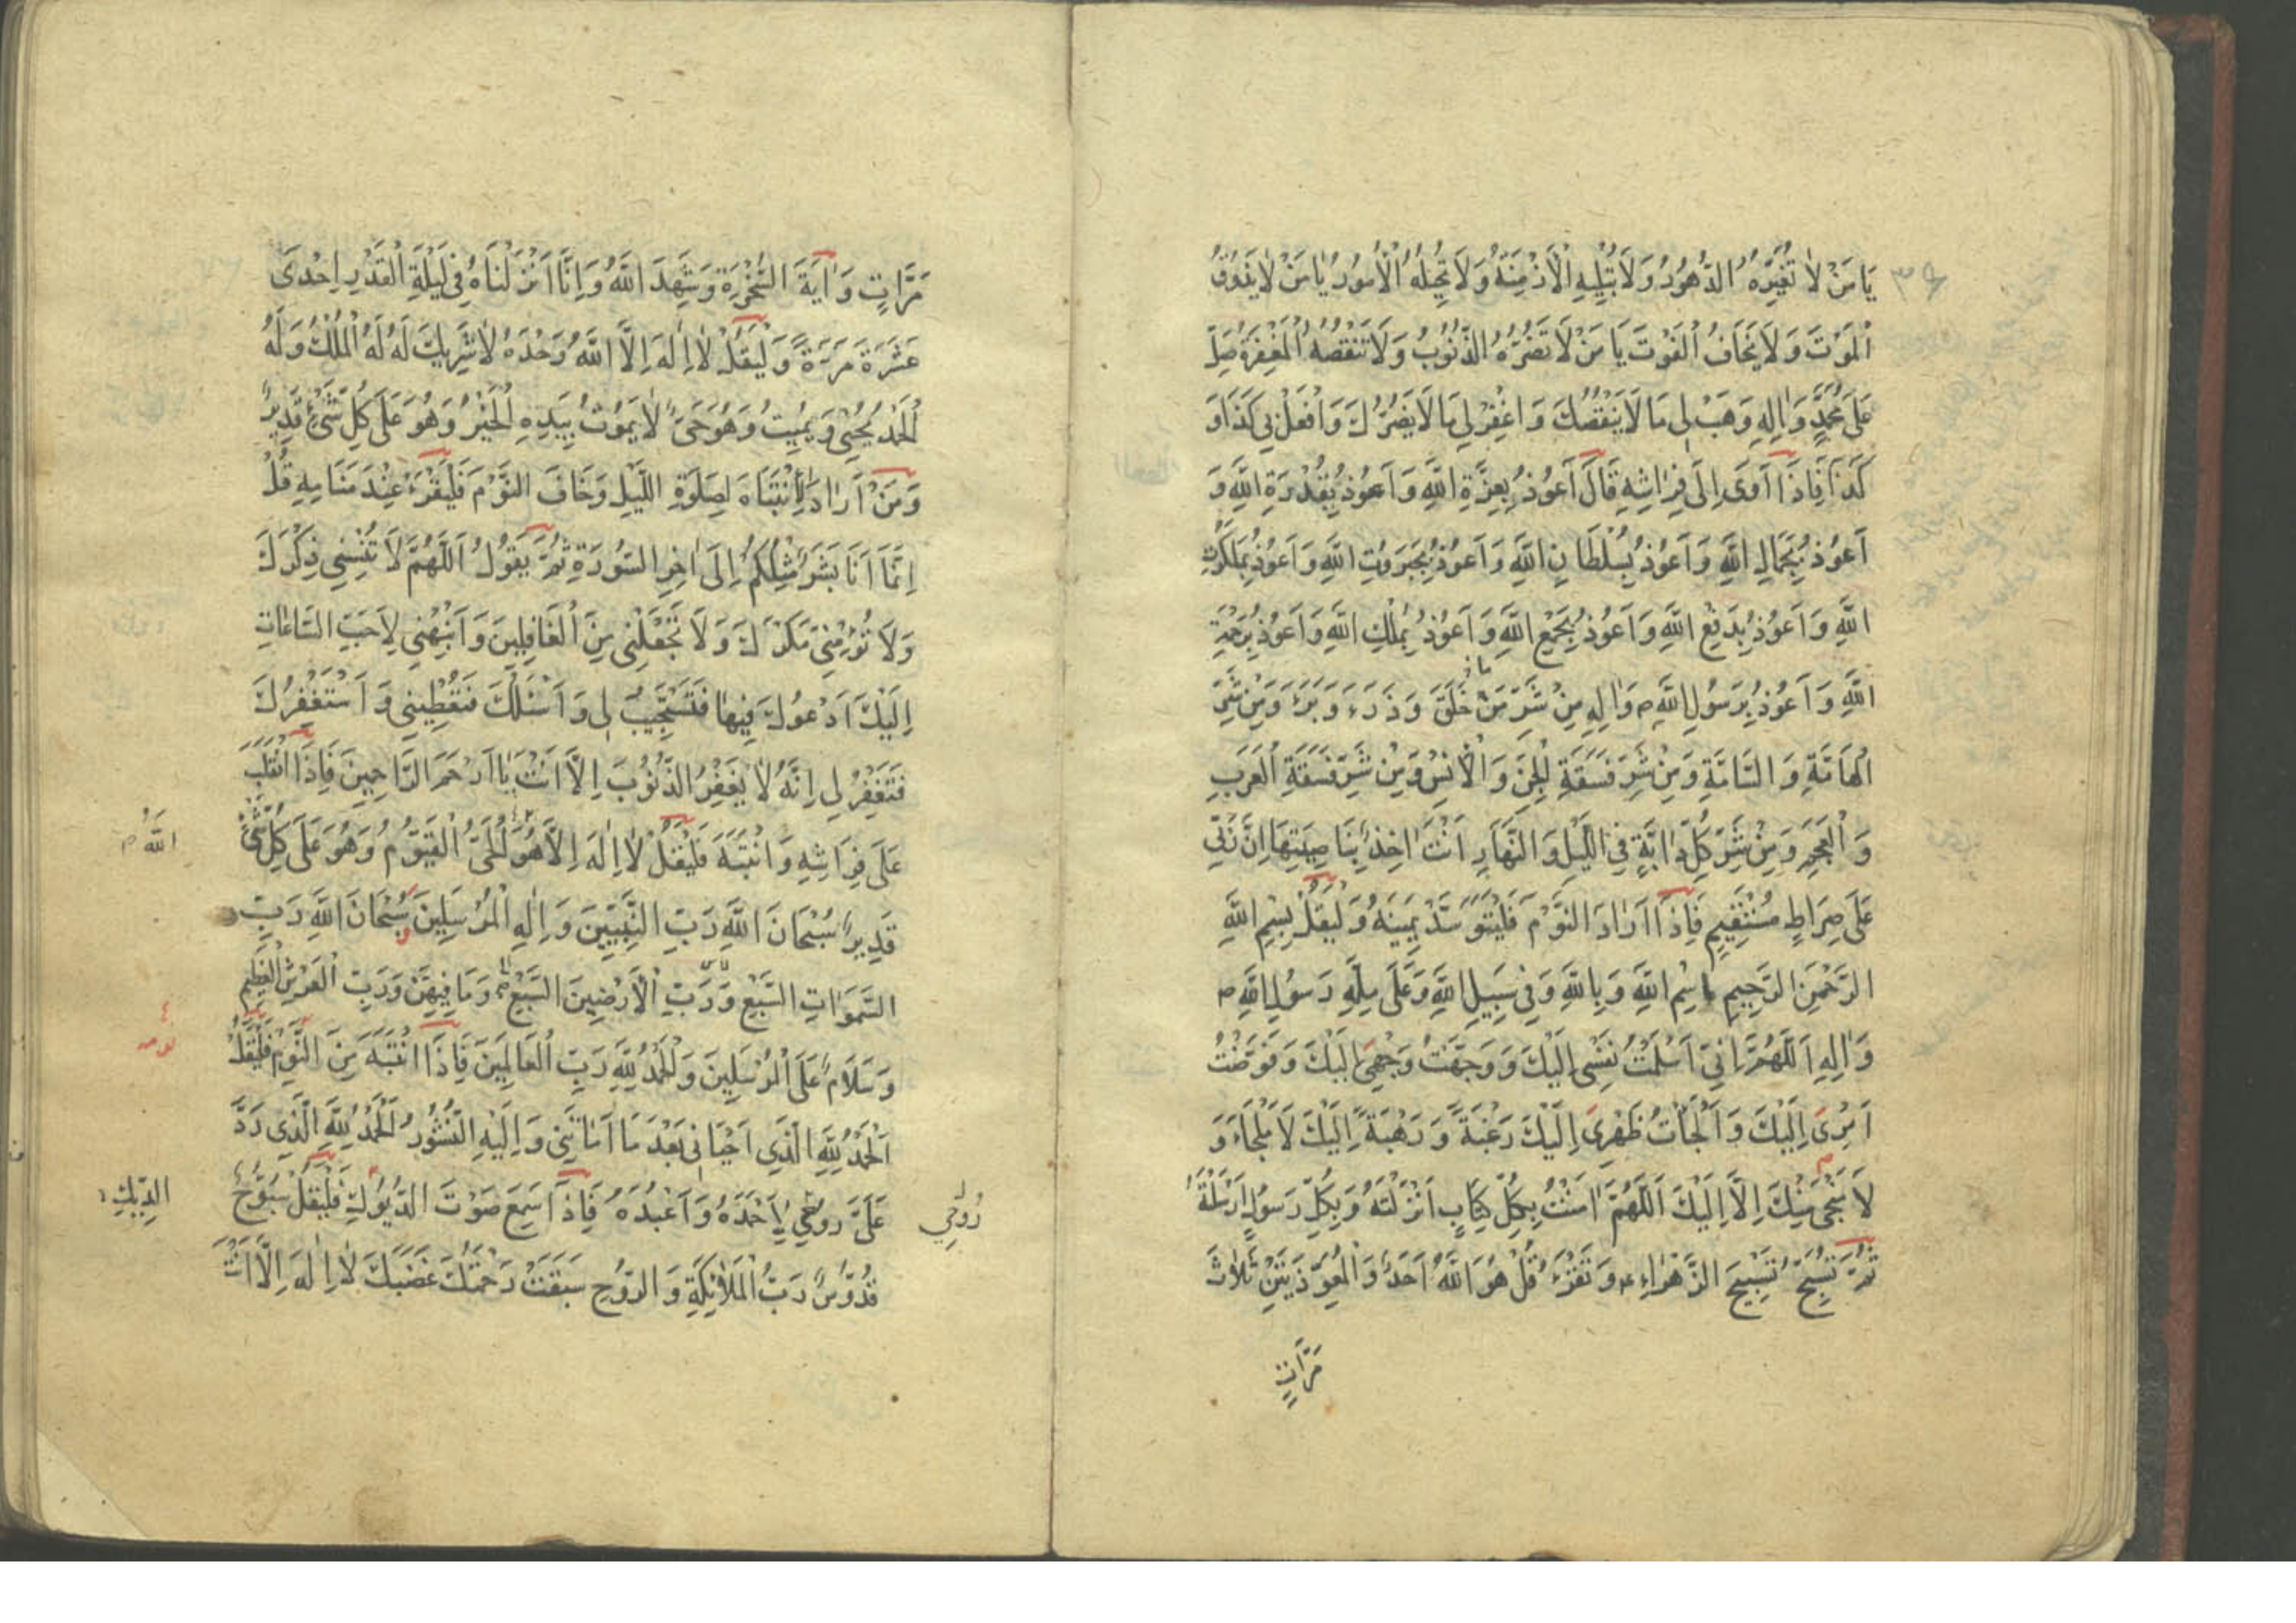 ٣٩
يَا مَنْ لَا تُغَيِّرُهُ الدُّهُورُ وَلَا تُبْلِيهِ الْأَزْمِنَةُ وَلَا تُحِيلُهُ الْأُمُورُ يَا مَنْ لَا يَذُوقُ
الْمَوْتَ وَلَا يَخَافُ الْفَوْتَ يَا مَنْ لَا تَضُرُّهُ الذُّنُوبُ وَلَا تَنْقُصُهُ الْمَغْفِرَةُ صَلِّ
عَلَى مُحَمَّدٍ وَاٰلِهِ وَهَبْ لِي مَا لَا يَنْقُصُكَ وَاغْفِرْ لِي مَا لَا يَضُرُّكَ وَافْعَلْ بِي كَذَا وَ
كَذَا فَاِذَا اَوَى اِلَى فِرَاشِهِ قَالَ اَعُوذُ بِعِزَّةِ اللّٰهِ وَاَعُوذُ بِقُدْرَةِ اللّٰهِ وَ
اَعُوذُ بِجَمَالِ اللّٰهِ وَاَعُوذُ بِسُلْطَانِ اللّٰهِ وَاَعُوذُ بِجَبَرُوتِ اللّٰهِ وَاَعُوذُ بِمَلَكُوتِ
اللّٰهِ وَاَعُوذُ بِدَفْعِ اللّٰهِ وَاَعُوذُ بِجَمْعِ اللّٰهِ وَاَعُوذُ بِمُلْكِ اللّٰهِ وَاَعُوذُ بِرَحْمَةِ
اللّٰهِ وَاَعُوذُ بِرَسُولِ اللّٰهِ ص وَاٰلِهِ مِنْ شَرِّ مَنْ خَلَقَ وَذَرَءَ وَبَرَءَ وَمِنْ شَرِّ
الْهَامَّةِ وَالسَّامَّةِ وَمِنْ شَرِّ فَسَقَةِ الْجِنِّ وَالْاِنْسِ وَمِنْ شَرِّ فَسَقَةِ الْعَرَبِ
وَالْعَجَمِ وَمِنْ شَرِّ كُلِّ دَابَّةٍ فِي اللَّيْلِ وَالنَّهَارِ اَنْتَ اٰخِذٌ بِنَاصِيَتِهَا اِنَّ رَبِّي
عَلَى صِرَاطٍ مُسْتَقِيمٍ فَاِذَا اَرَادَ النَّوْمَ فَلْيَتَوَسَّدْ يَمِينَهُ وَلْيَقُلْ بِسْمِ اللّٰهِ
الرَّحْمٰنِ الرَّحِيمِ بِاسْمِ اللّٰهِ وَبِاللّٰهِ وَفِي سَبِيلِ اللّٰهِ وَعَلَى مِلَّةِ رَسُولِ اللّٰهِ ص
وَاٰلِهِ اَللّٰهُمَّ اِنِّي اَسْلَمْتُ نَفْسِي اِلَيْكَ وَوَجَّهْتُ وَجْهِيَ اِلَيْكَ وَفَوَّضْتُ
اَمْرِيَ اِلَيْكَ وَاَلْجَأْتُ ظَهْرِيَ اِلَيْكَ رَغْبَةً وَرَهْبَةً اِلَيْكَ لَا مَلْجَاءَ وَ
لَا مَنْجٰى مِنْكَ اِلَّا اِلَيْكَ اَللّٰهُمَّ اٰمَنْتُ بِكُلِّ كِتَابٍ اَنْزَلْتَهُ وَبِكُلِّ رَسُولٍ اَرْسَلْتَهُ
ثُمَّ تُسَبِّحُ تَسْبِيحَ الزَّهْرَاءِ ع وَتَقْرَءُ قُلْ هُوَ اللّٰهُ اَحَدٌ وَالْمُعَوِّذَتَيْنِ ثَلَاثَ
مَرَّاتٍ
مَرَّاتٍ وَاٰيَةَ السُّخْرَةِ وَشَهِدَ اللّٰهُ وَاِنَّا اَنْزَلْنَاهُ فِي لَيْلَةِ الْقَدْرِ اِحْدَى
عَشْرَةَ مَرَّةً وَلْيَقُلْ لَا اِلٰهَ اِلَّا اللّٰهُ وَحْدَهُ لَا شَرِيكَ لَهُ لَهُ الْمُلْكُ وَلَهُ
الْحَمْدُ يُحْيِي وَيُمِيتُ وَهُوَ حَيٌّ لَا يَمُوتُ بِيَدِهِ الْخَيْرُ وَهُوَ عَلَى كُلِّ شَيْءٍ قَدِيرٌ
وَمَنْ اَرَادَ الْاِنْتِبَاهَ لِصَلَوةِ اللَّيْلِ وَخَافَ النَّوْمَ فَلْيَقْرَءْ عِنْدَ مَنَامِهِ قُلْ
اِنَّمَا اَنَا بَشَرٌ مِثْلُكُمْ اِلَى اٰخِرِ السُّورَةِ ثُمَّ يَقُولُ اَللّٰهُمَّ لَا تُنْسِنِي ذِكْرَكَ
وَلَا تُؤْمِنِّي مَكْرَكَ وَلَا تَجْعَلْنِي مِنَ الْغَافِلِينَ وَاَنْبِهْنِي لِاَحَبِّ السَّاعَاتِ
اِلَيْكَ اَدْعُوكَ فِيهَا فَتَسْتَجِيبَ لِي وَاَسْئَلُكَ فَتُعْطِيَنِي وَاَسْتَغْفِرُكَ
فَتَغْفِرُ لِي اِنَّهُ لَا يَغْفِرُ الذُّنُوبَ اِلَّا اَنْتَ يَا اَرْحَمَ الرَّاحِمِينَ فَاِذَا انْقَلَبَ
عَلَى فِرَاشِهِ وَانْتَبَهَ فَلْيَقُلْ لَا اِلٰهَ اِلَّا هُوَ الْحَيُّ الْقَيُّومُ وَهُوَ عَلَى كُلِّ شَيْءٍ
اللّٰهُ
قَدِيرٌ سُبْحَانَ اللّٰهِ رَبِّ النَّبِيِّينَ وَاِلٰهِ الْمُرْسَلِينَ وَسُبْحَانَ اللّٰهِ رَبِّ
السَّمٰوَاتِ السَّبْعِ وَرَبِّ الْاَرَضِينَ السَّبْعِ وَمَا فِيهِنَّ وَرَبِّ الْعَرْشِ الْعَظِيمِ
وَسَلَامٌ عَلَى الْمُرْسَلِينَ وَالْحَمْدُ لِلّٰهِ رَبِّ الْعَالَمِينَ فَاِذَا انْتَبَهَ مِنَ النَّوْمِ فَلْيَقُلْ
نومه
اَلْحَمْدُ لِلّٰهِ الَّذِي اَحْيَانِي بَعْدَ مَا اَمَاتَنِي وَاِلَيْهِ النُّشُورُ الْحَمْدُ لِلّٰهِ الَّذِي رَدَّ
عَلَيَّ رُوحِي لِاَحْمَدَهُ وَاَعْبُدَهُ فَاِذَا سَمِعَ صَوْتَ الدُّيُوكِ فَلْيَقُلْ سُبُّوحٌ
رُوحِي
الدِّيكِ
قُدُّوسٌ رَبُّ الْمَلَائِكَةِ وَالرُّوحِ سَبَقَتْ رَحْمَتُكَ غَضَبَكَ لَا اِلٰهَ اِلَّا اَنْتَ